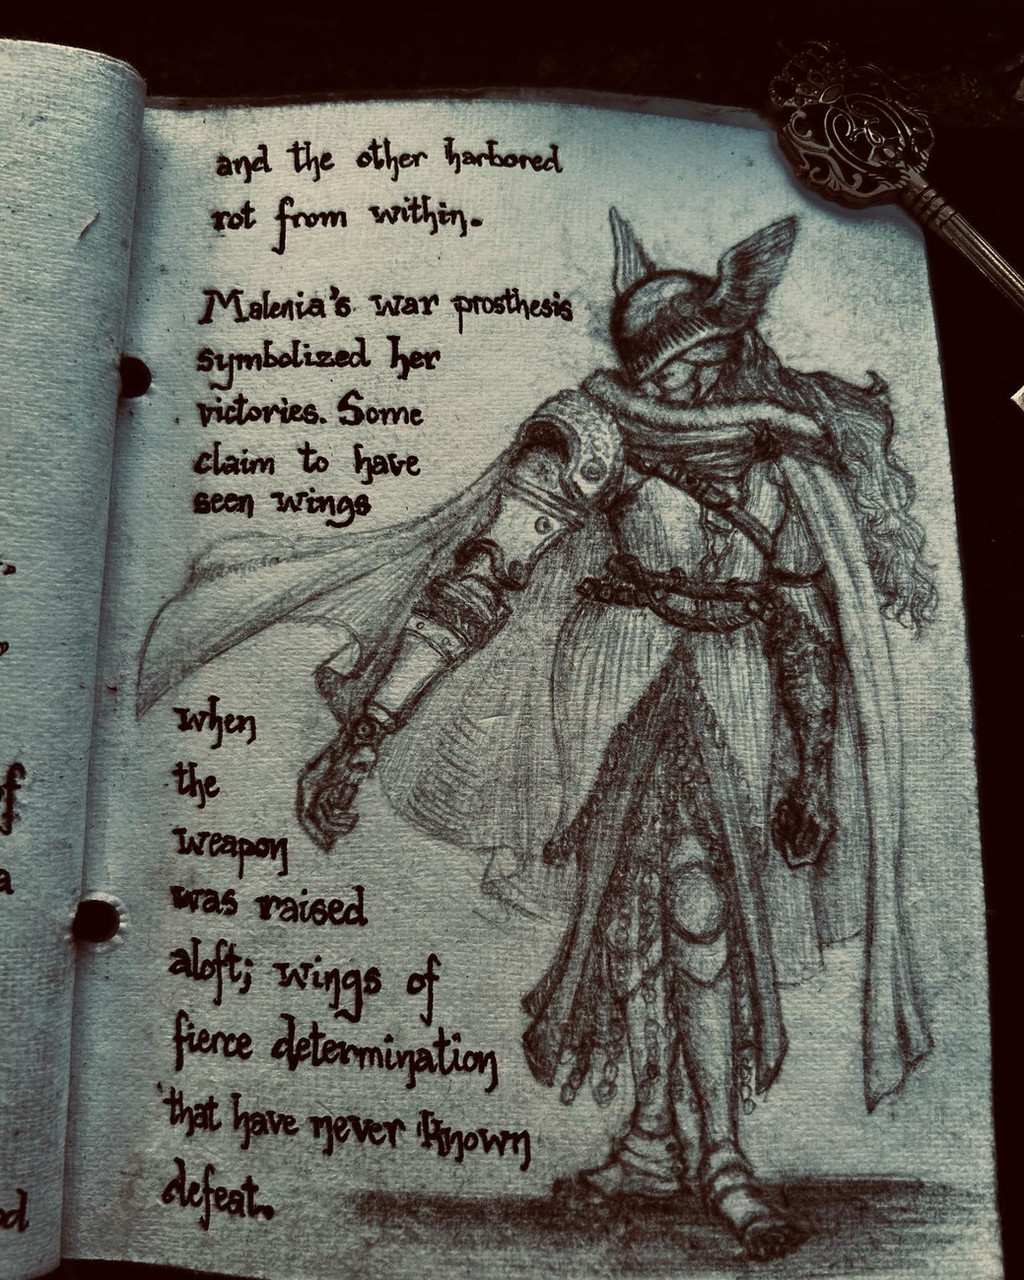 and the other harbored
rot from within.
Malenia's war prosthesis
symbolized her
victories. Some
claim to have
seen wings
when
the
weapon
was raised
aloft; wings of
fierce determination
that have never known
defeat.